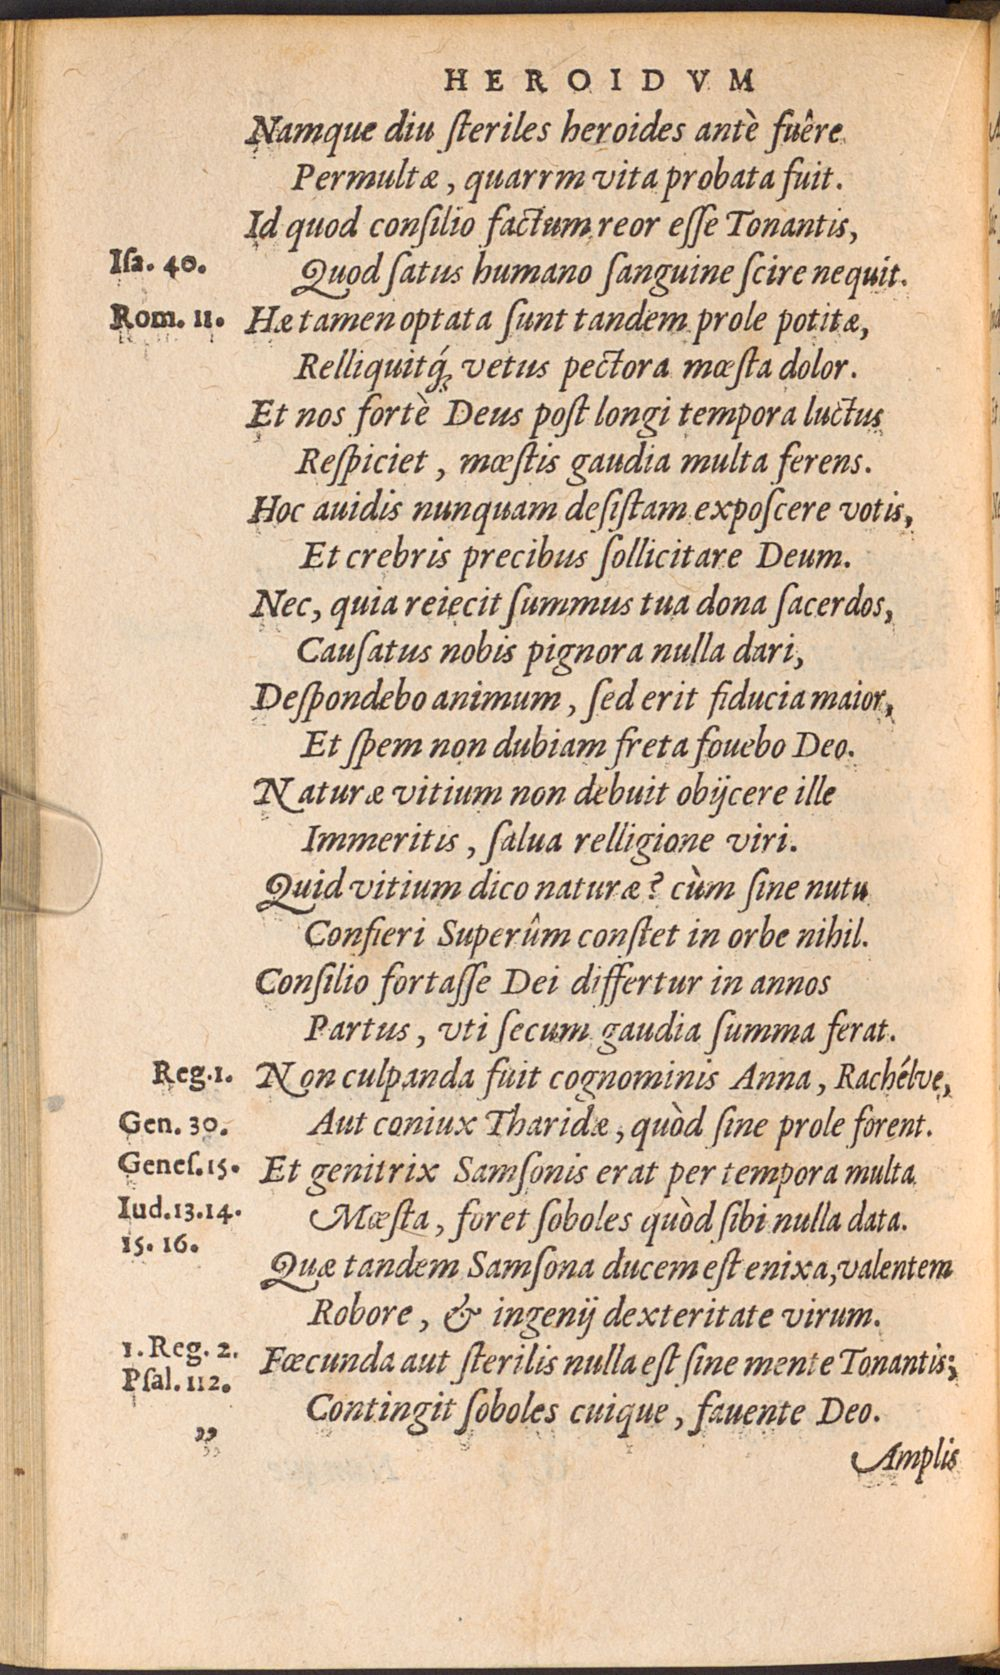 HEROIDVM
Namque diu ſteriles heroides antè fuêre
Permultæ, quarrm vita probata fuit.
Id quod conſilio factum reor eſſe Tonantis,
Iſa. 40.
Quod ſatus humano ſanguine ſcire nequit.
Rom. 11.
Hæ tamen optata ſunt tandem prole potitæ,
Relliquitq́; vetus pectora mœſta dolor.
Et nos fortè Deus poſt longi tempora luctus
Reſpiciet, mœſtis gaudia multa ferens.
Hoc auidis nunquam deſiſtam expoſcere votis,
Et crebris precibus ſollicitare Deum.
Nec, quia reiecit ſummus tua dona ſacerdos,
Cauſatus nobis pignora nulla dari,
Deſpondebo animum, ſed erit fiducia maior,
Et ſpem non dubiam freta fouebo Deo.
Naturæ vitium non debuit obijcere ille
Immeritis, ſalua relligione viri.
Quid vitium dico naturæ? cùm ſine nutu
Confieri Superûm conſtet in orbe nihil.
Conſilio fortaſſe Dei differtur in annos
Partus, vti ſecum gaudia ſumma ferat.
Reg.1.
Non culpanda fuit cognominis Anna, Rachélve,
Gen. 30.
Aut coniux Tharidæ, quòd ſine prole forent.
Geneſ.15.
Et genitrix Samſonis erat per tempora multa
Iud.13.14.
Mœſta, foret ſoboles quòd ſibi nulla data.
15. 16.
Quæ tandem Samſona ducem eſt enixa, valentem
Robore, & ingenij dexteritate virum.
1. Reg. 2.
Fœcunda aut ſterilis nulla eſt ſine mente Tonantis;
Pſal. 112.
Contingit ſoboles cuique, fauente Deo.
„
Amplis